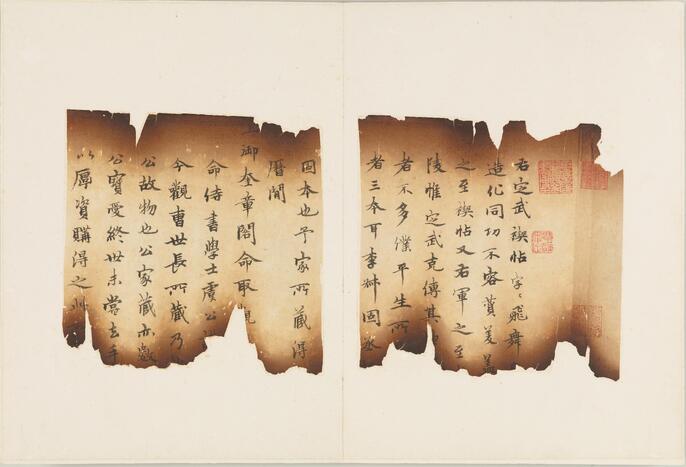 右定武禊帖字〻飛舞
造化同功不容贊美蓋
之至禊帖又右軍之至
陵惟定武克傳其
者不多僕平生所
者三本耳李狮固丞
固本也予家所藏得
曆間
御奎章閣命取
命侍書學士虞公
今觀曹世長所藏乃
公故物也公家藏亦數
公寶愛終世未嘗去手
以厚資購得之